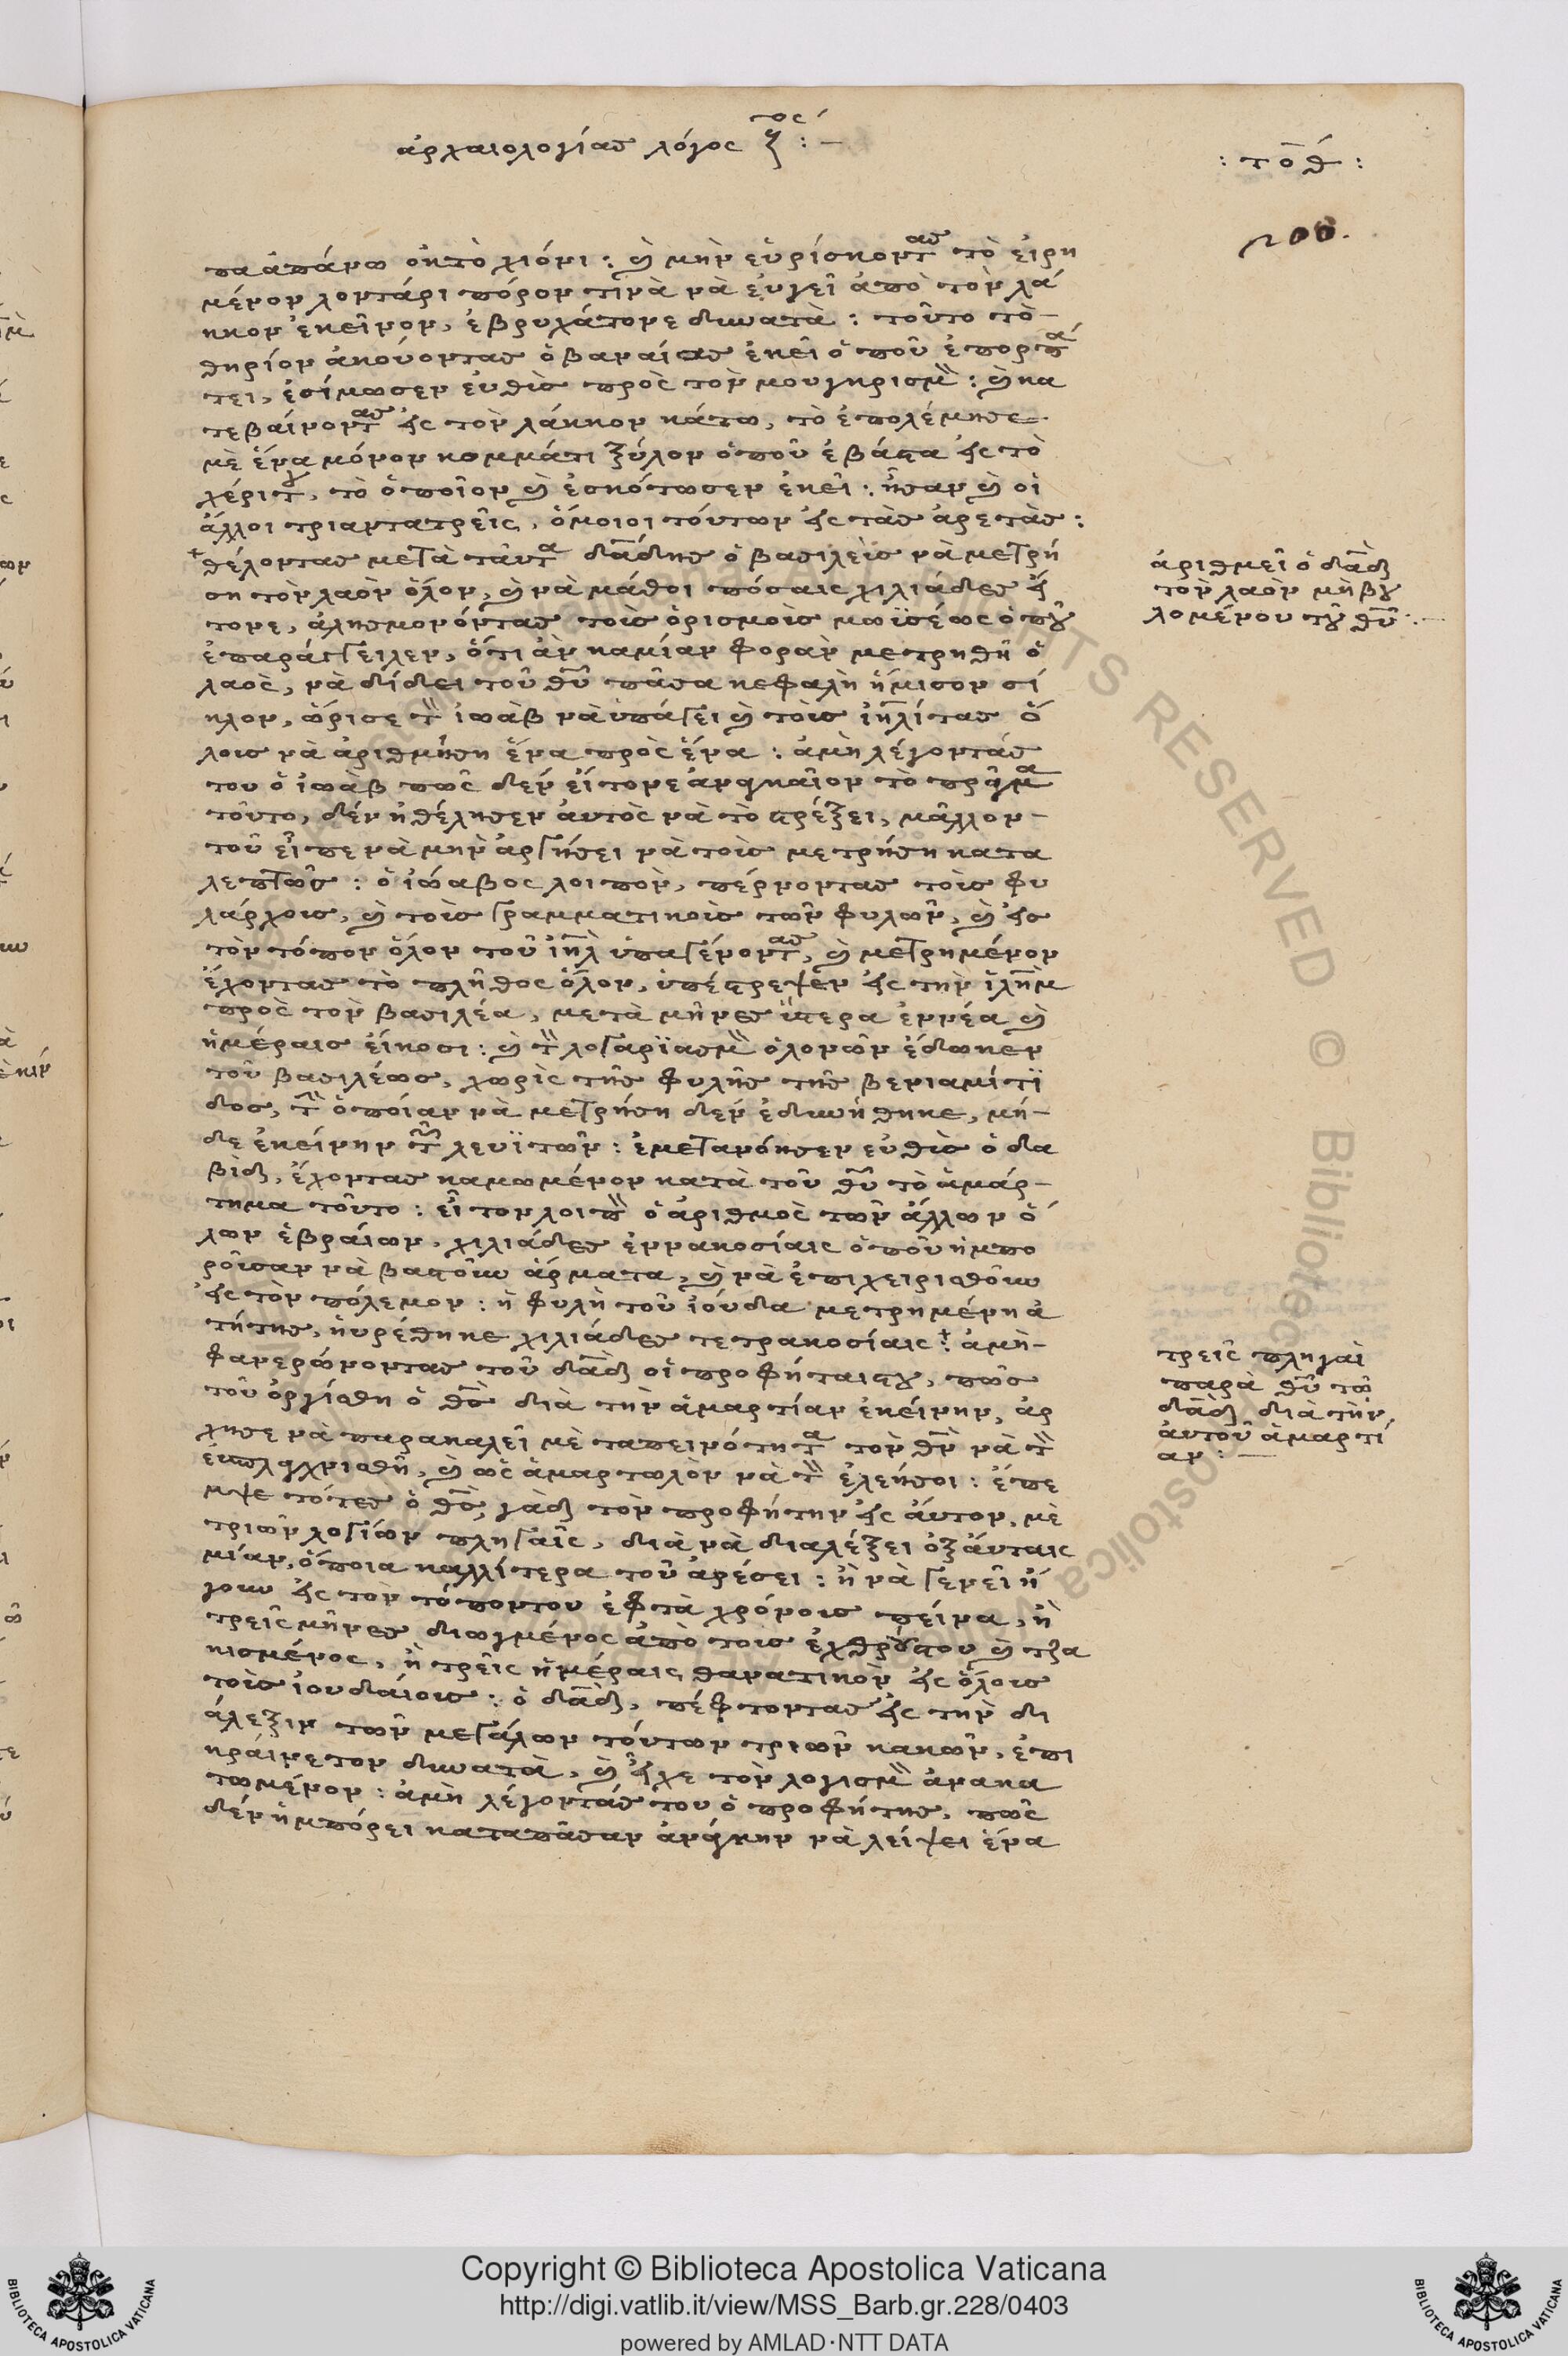 ἀρχαιολογίας λόγος ζ τος :—
: τοθ :
200.
πα ἀπάνω ὀκτὸ χιόνι : καὶ μὴν εὑρίσκοντας τὸ εἰρη
μένον λοντάρι πόρον τινὰ νὰ εὐγεῖ ἀπὸ τὸν λά
κκον ἐκεῖνον, ἐβρυχάτονε δυνατὰ : τοῦτο τὸ—
θηρίον ἀκούοντας ὁ βαναίας ἐκεῖ ὁποῦ ἐπορπά
τει, ἐσίμωσεν εὐθὶς πρὸς τὸν μουγκρισμὸν : καὶ κα
τεβαίνοντας εἰς τὸν λάκκον κάτω, τὸ ἐπολέμησε
μὲ ἕνα μόνον κομμάτι ξύλον ὁποῦ ἐβάστα εἰς τὸ
χέριτου, τὸ ὁποῖον καὶ ἐσκότωσεν ἐκεῖ : ἦσαν καὶ οἱ
ἄλλοι τριαντατρεῖς, ὅμοιοι τούτων εἰς τὰς ἀρετὰς :
θέλοντας μετὰ ταῦτα δαδης ὁ βασιλεὺς νὰ μετρή
ση τὸν λαὸν ὅλον, καὶ νὰ μάθοι πόσαις χιλιάδες εἶ
τονε, ἀλησμονόντας τοὶς ὁρισμοὶς μωϊσέως ὁποῦ
ἐπαράγγειλεν, ὅτι ἂν καμίαν φορὰν μετρηθῆ ὁ
λαὸς, νὰ δίδει τοῦ θῦ πᾶσα κεφαλὴ ἥμισον σί
κλον, ὥρισε τὸν ἰωὰβ νὰ ὑπάγει καὶ τοὶς ἰηλίτας ὅ
λοις νὰ ἀριθμήση ἕνα πρὸς ἕνα : ἀμὴ λέγοντάς
του ὁ ἰωὰβ πῶς δὲν εἴτονε ἀναγκαῖον τὸ πρᾶγμα
τοῦτο, δὲν ἠθέλησεν αὐτὸς νὰ τὸ στρέξει, μᾶλλον—
τοῦ εἶπε νὰ μὴν ἀργήσει νὰ τοὶς μετρήση κατα
λεπτῶς : ὁ ἰώαβος λοιπὸν, πέρνοντας τοὶς φυ
λάρχοις, καὶ τοὶς γραμματικοὶς τῶν φυλῶν, καὶ εἰς
τὸν τόπον ὅλον τοῦ ἰηλ ὑπαγένοντας, καὶ μετρημένον
ἔχοντας τὸ πλῆθος ὅλον, ὑπέστρεψεν εἰς τὴν ἰλημ
πρὸς τὸν βασιλέα, μετὰ μῆνες ὕστερα ἐννέα καὶ
ἡμέραις εἴκοσι : καὶ τὸν λογαριασμὸν ὁλονῶν ἔδωκεν
τοῦ βασιλέως, χωρὶς τῆς φυλῆς τῆς βενιαμίτι
δος, τὴν ὁποίαν νὰ μετρήση δὲν ἐδυνήθηκε, μή—
δε ἐκείνην τῶν λευϊτῶν : ἐμετανόησεν εὐθὶς ὁ δα
βὶδ, ἔχοντας καμωμένον κατὰ τοῦ θῦ τὸ ἁμάρ—
τημα τοῦτο : εἶτον λοιπὸν ὁ ἀριθμὸς τῶν ἄλλων ὅ
λων ἑβραίων, χιλιάδες ἐννακοσίαις ὁποῦ ἠμπο
ροῦσαν νὰ βαστοῦν ἄρματα, καὶ νὰ ἐπιχειριαθοῦν
εἰς τὸν πόλεμον : ἡ φυλὴ τοῦ ἰούδα μετρημένη ἀ
τήτης, ηὑρέθηκε χιλιάδες τετρακοσίαις : ἀμὴ—
φανερώνοντας τοῦ δαδ οἱ προφήταιστου, πῶς
τοῦ ὀργίσθη ὁ θς διὰ τὴν ἁμαρτίαν ἐκείνην, ἄρ
χησε νὰ παρακαλεῖ μὲ ταπεινότητα τὸν θν νὰ τὸν
ἐυσπλαχνισθῆ, καὶ ὡς ἁμαρτωλὸν νὰ τὸν ἐλεήσοι : ἔπε
μψε τότες ὁ θς, γὰδ τὸν προφήτην εἰς αὐτον, μὲ
τριῶν λογίων πληγαῖς, διὰ νὰ διαλέξει ὀξάυταις
μίαν, ὅποια καλλίτερα τοῦ ἀρέσει : ἢ νὰ γενεῖ ἤ
γουν εἰς τὸν τόποντου ἐφτὰ χρόνοις πείνα, ἢ
τρεῖς μῆνες διωγμένος ἀπὸ τοις ἐχθρούςτου καὶ τζα
κισμένος, ἢ τρεῖς ἡμέραις θανατικὸν εἰς ὅλοις
τοὶς ἰουδαίοις : ὁ δαδ, πέφτοντας εἰς τὴν δι
άλεξιν τῶν μεγάλων τούτων τριῶν κακῶν, ἐπι
κράινετον δυνατὰ, καὶ εἶχε τὸν λογισμὸν ἀνακα
τωμένον : ἀμὴ λέγοντάς του ὁ προφήτης, πῶς
δὲν ἠμπόρει καταπᾶσαν ἀνάγκην νὰ λείψει ἕνα
ἀριθμεῖ ὁ δαδ
τὸν λαὸν μὴ βου
λομένου τοῦ θῦ :—
τρεῖς πληγαὶ
παρὰ θῦ τῶ
δαδ διὰ τὴν
αὐτοῦ ἁμαρτί
αν :—
Copyright © Biblioteca Apostolica Vaticana
http://digi.vatlib.it/view/MSS_Barb.gr.228/0403
powered by AMLAD·NTT DATA